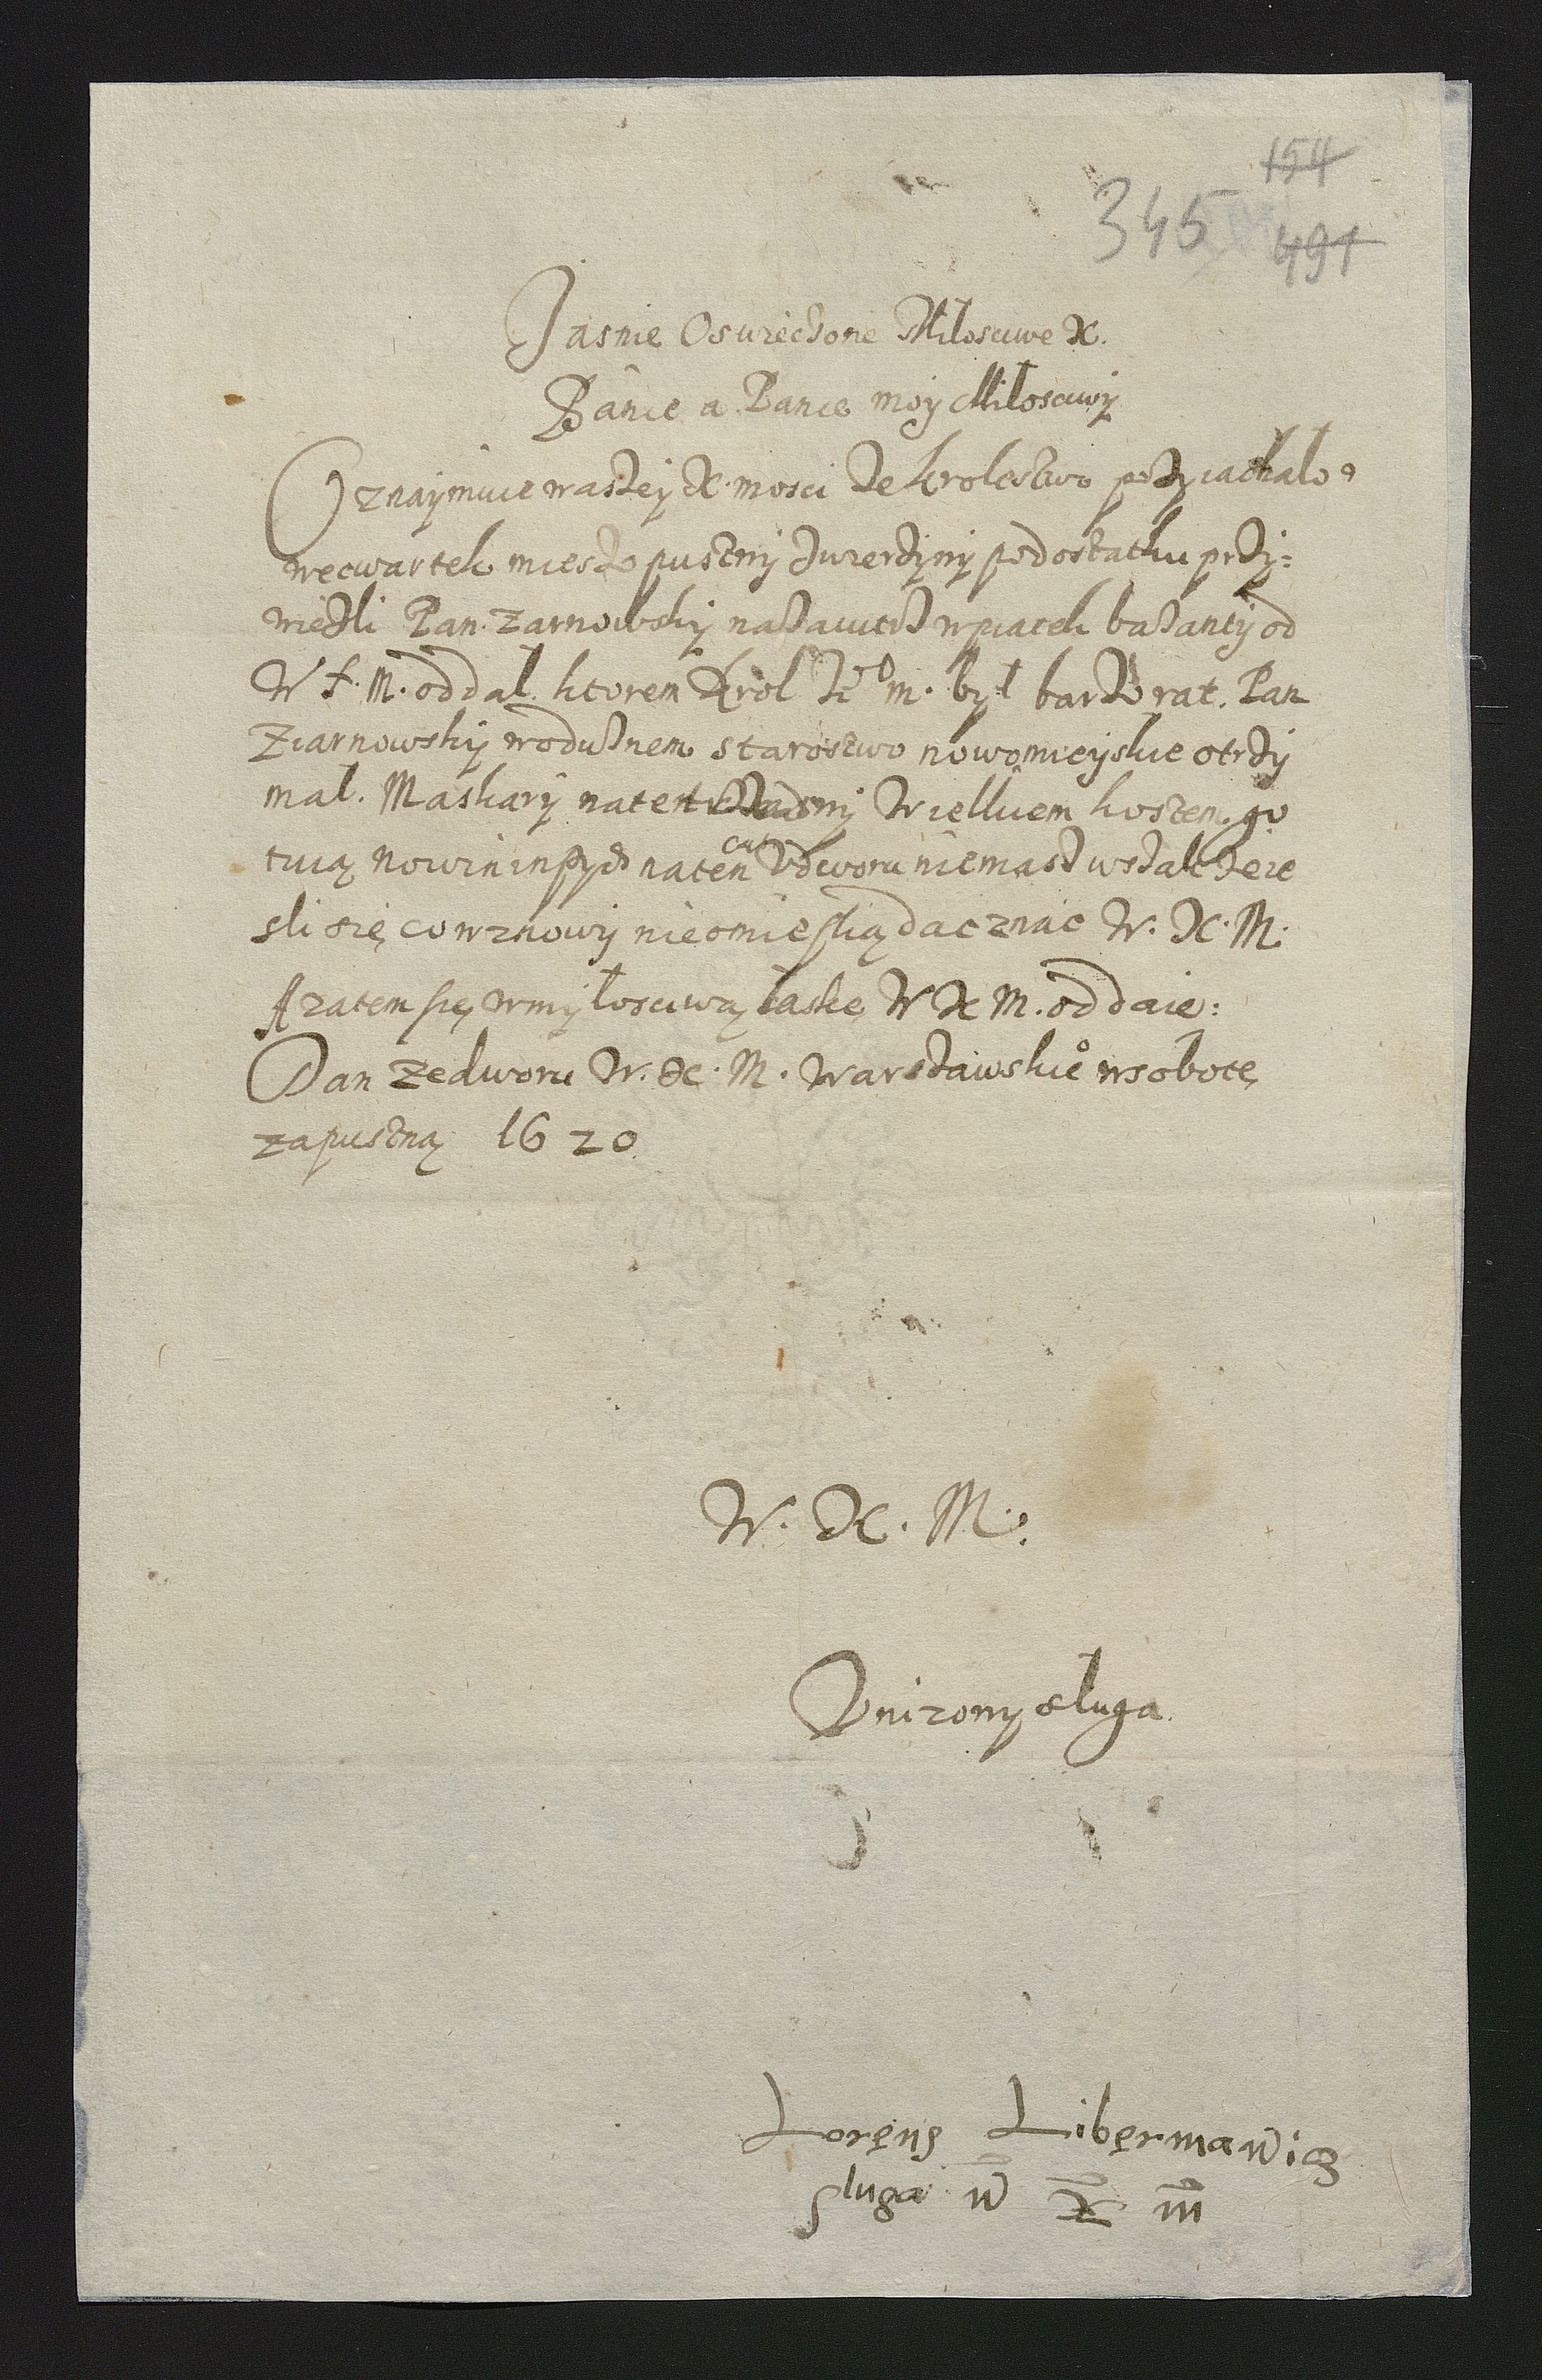 154
345 491
Jasnie Oswiechone Milosciwe X.
Panie a Panie moy Miłosciwy
Oznaymuie waszey X. mosci ze krolestwo przyiachalo
we cwartek miesopustny zwierzyny podostatku przy=
wiezli Pan Zarnowsky nazaiutrz w piatek bazanty od
W X. M. oddał ktorem Krol Jeo m. był barzo rat. Pan
Ziarnowsky wodusnem starostwo nowomieyskie otrzy
mał. Maskary naten Wielkiem kostem go
tuią nowin inszych naten cas v dworu niemasz wszak ze ie
sli się co wznowy nieomieszką dac znac W. X. M.
A zatem się w myłosciwą łaske W X M. oddaie:
Dan ze dworu W. X. M. Warszawskieo w sobotę
zapustną 1620
W. X. M.
Vnizony sługa
Lorens Libermawicz
sługa W X M